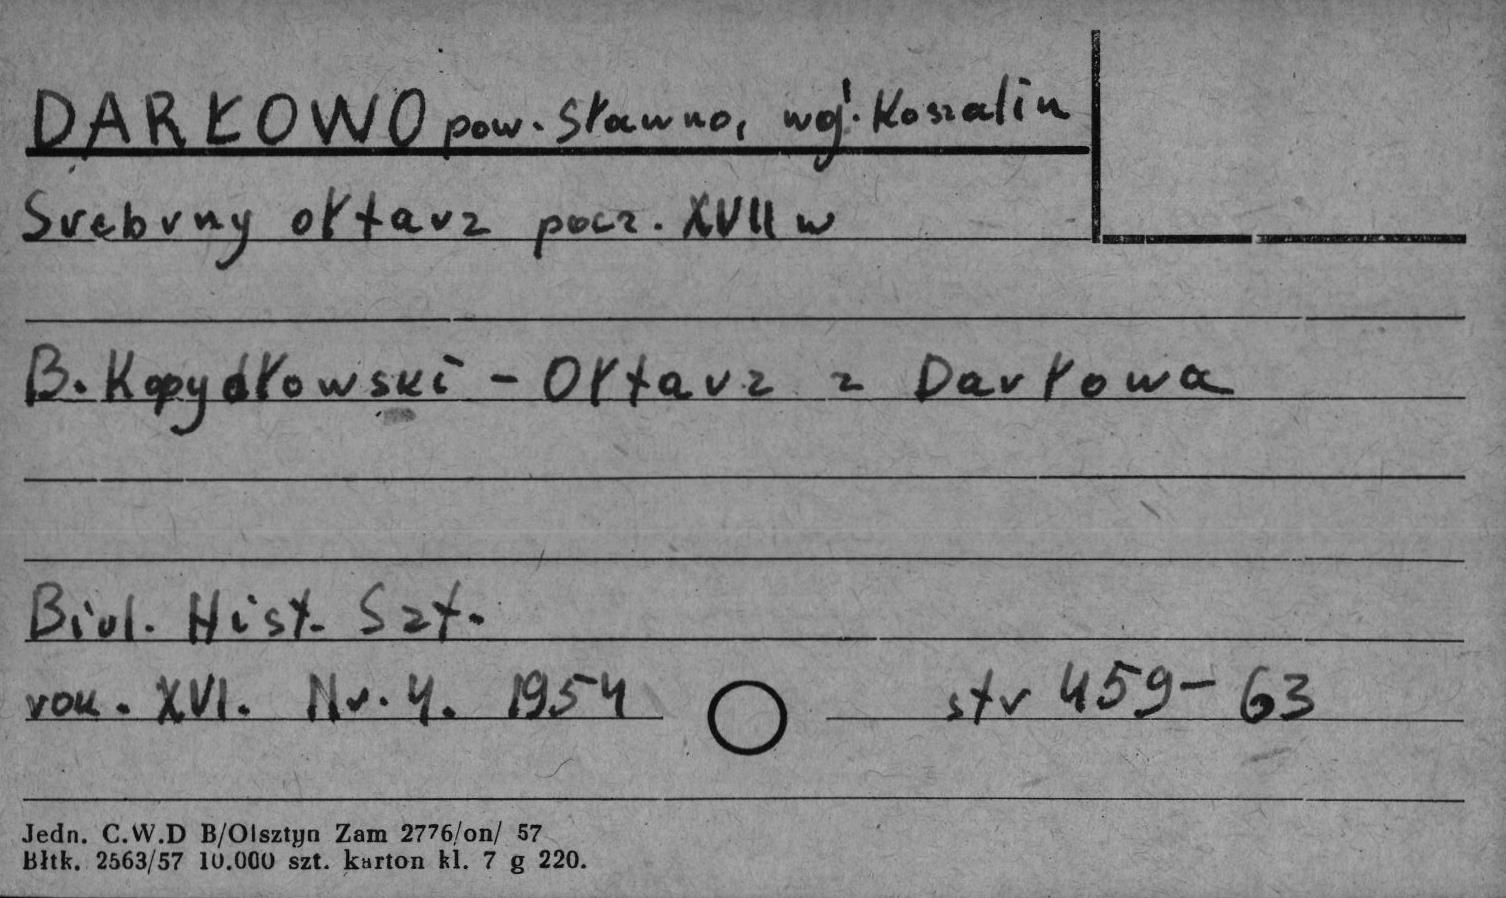 DARŁOWO pow. Sławno, woj. Koszalin
Srebrny ołtarz pocz. XVII w
B. Kopydłowski - Ołtarz z Darłowa
Biul. Hist. Szt.
rok. XVI. Nr. 4. 1954 str 459-63
Jedn. C.W.D B/Olsztyn Zam 2776/on/ 57
Błtk. 2563/57 10.000 szt. karton kl. 7 g 220.